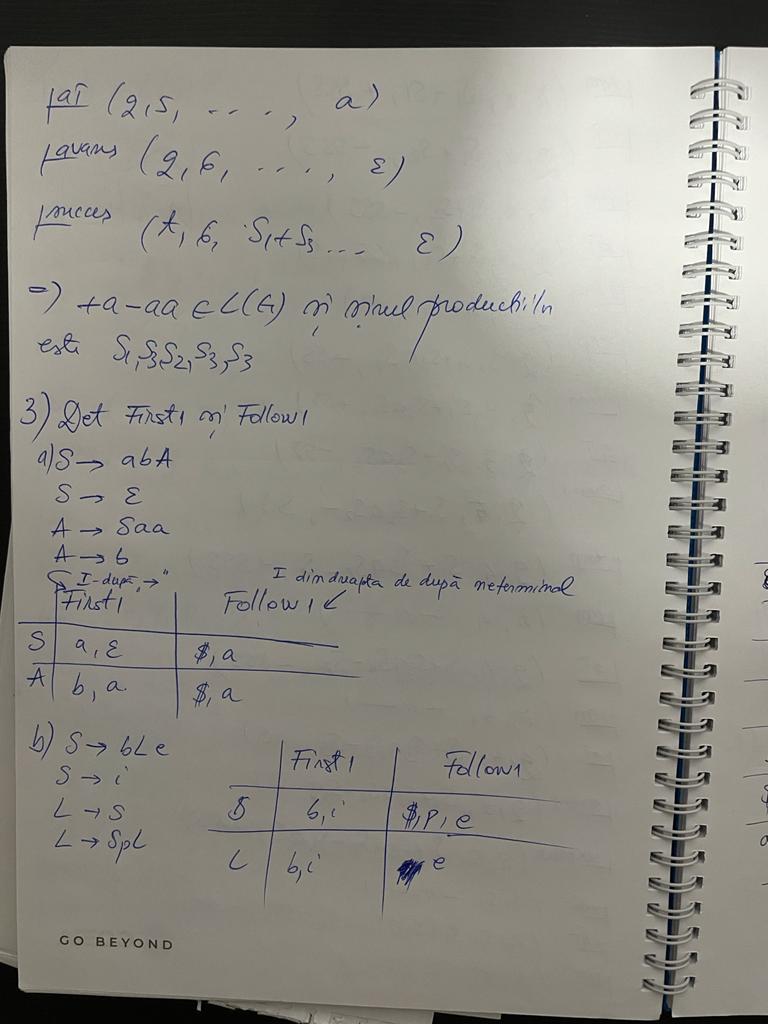 (2,5, ...., a)
avans (2,6, ...., ε)
succes (t, 6, S₁+S₃ ... ε)
=) +a-aa ∈ L(G) și șirul productiiln
este S₁,S₃S₂,S₃,S₃
3) Det First1 și Follow1
a) S → abA
S → ε
A → Saa
A → b
I-după „→" I din dreapta de după neterminal
First1 Follow1
S a, ε $, a
A b, a $, a
b) S → bLe
S → i
L → S
L → SpL
First1 Follow1
S b,i $,p, e
L b,i e
GO BEYOND